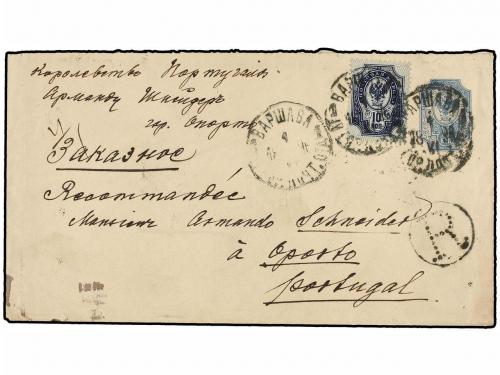 Королевство Португалія
Арманду Шнейдеръ
гор. Опорто
Заказное
Recommandée
Monsieur Armando Schneider
à Oporto
Portugal
ВАРШАВА
4
ВАРШАВА
VI
10
R